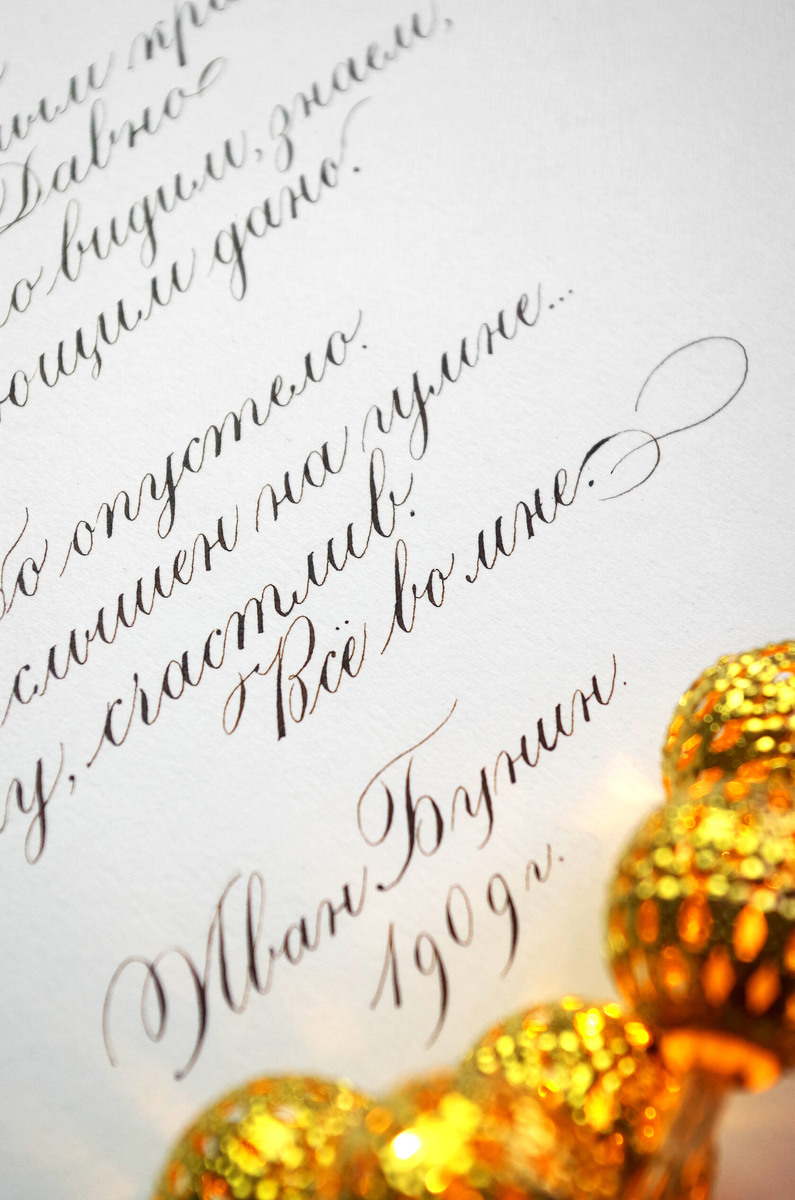 Давно
видим, знаем,
дано.
опустело.
слышен на гумне...
счастлив.
Всё во мне.
Иван Бунин.
1909 г.